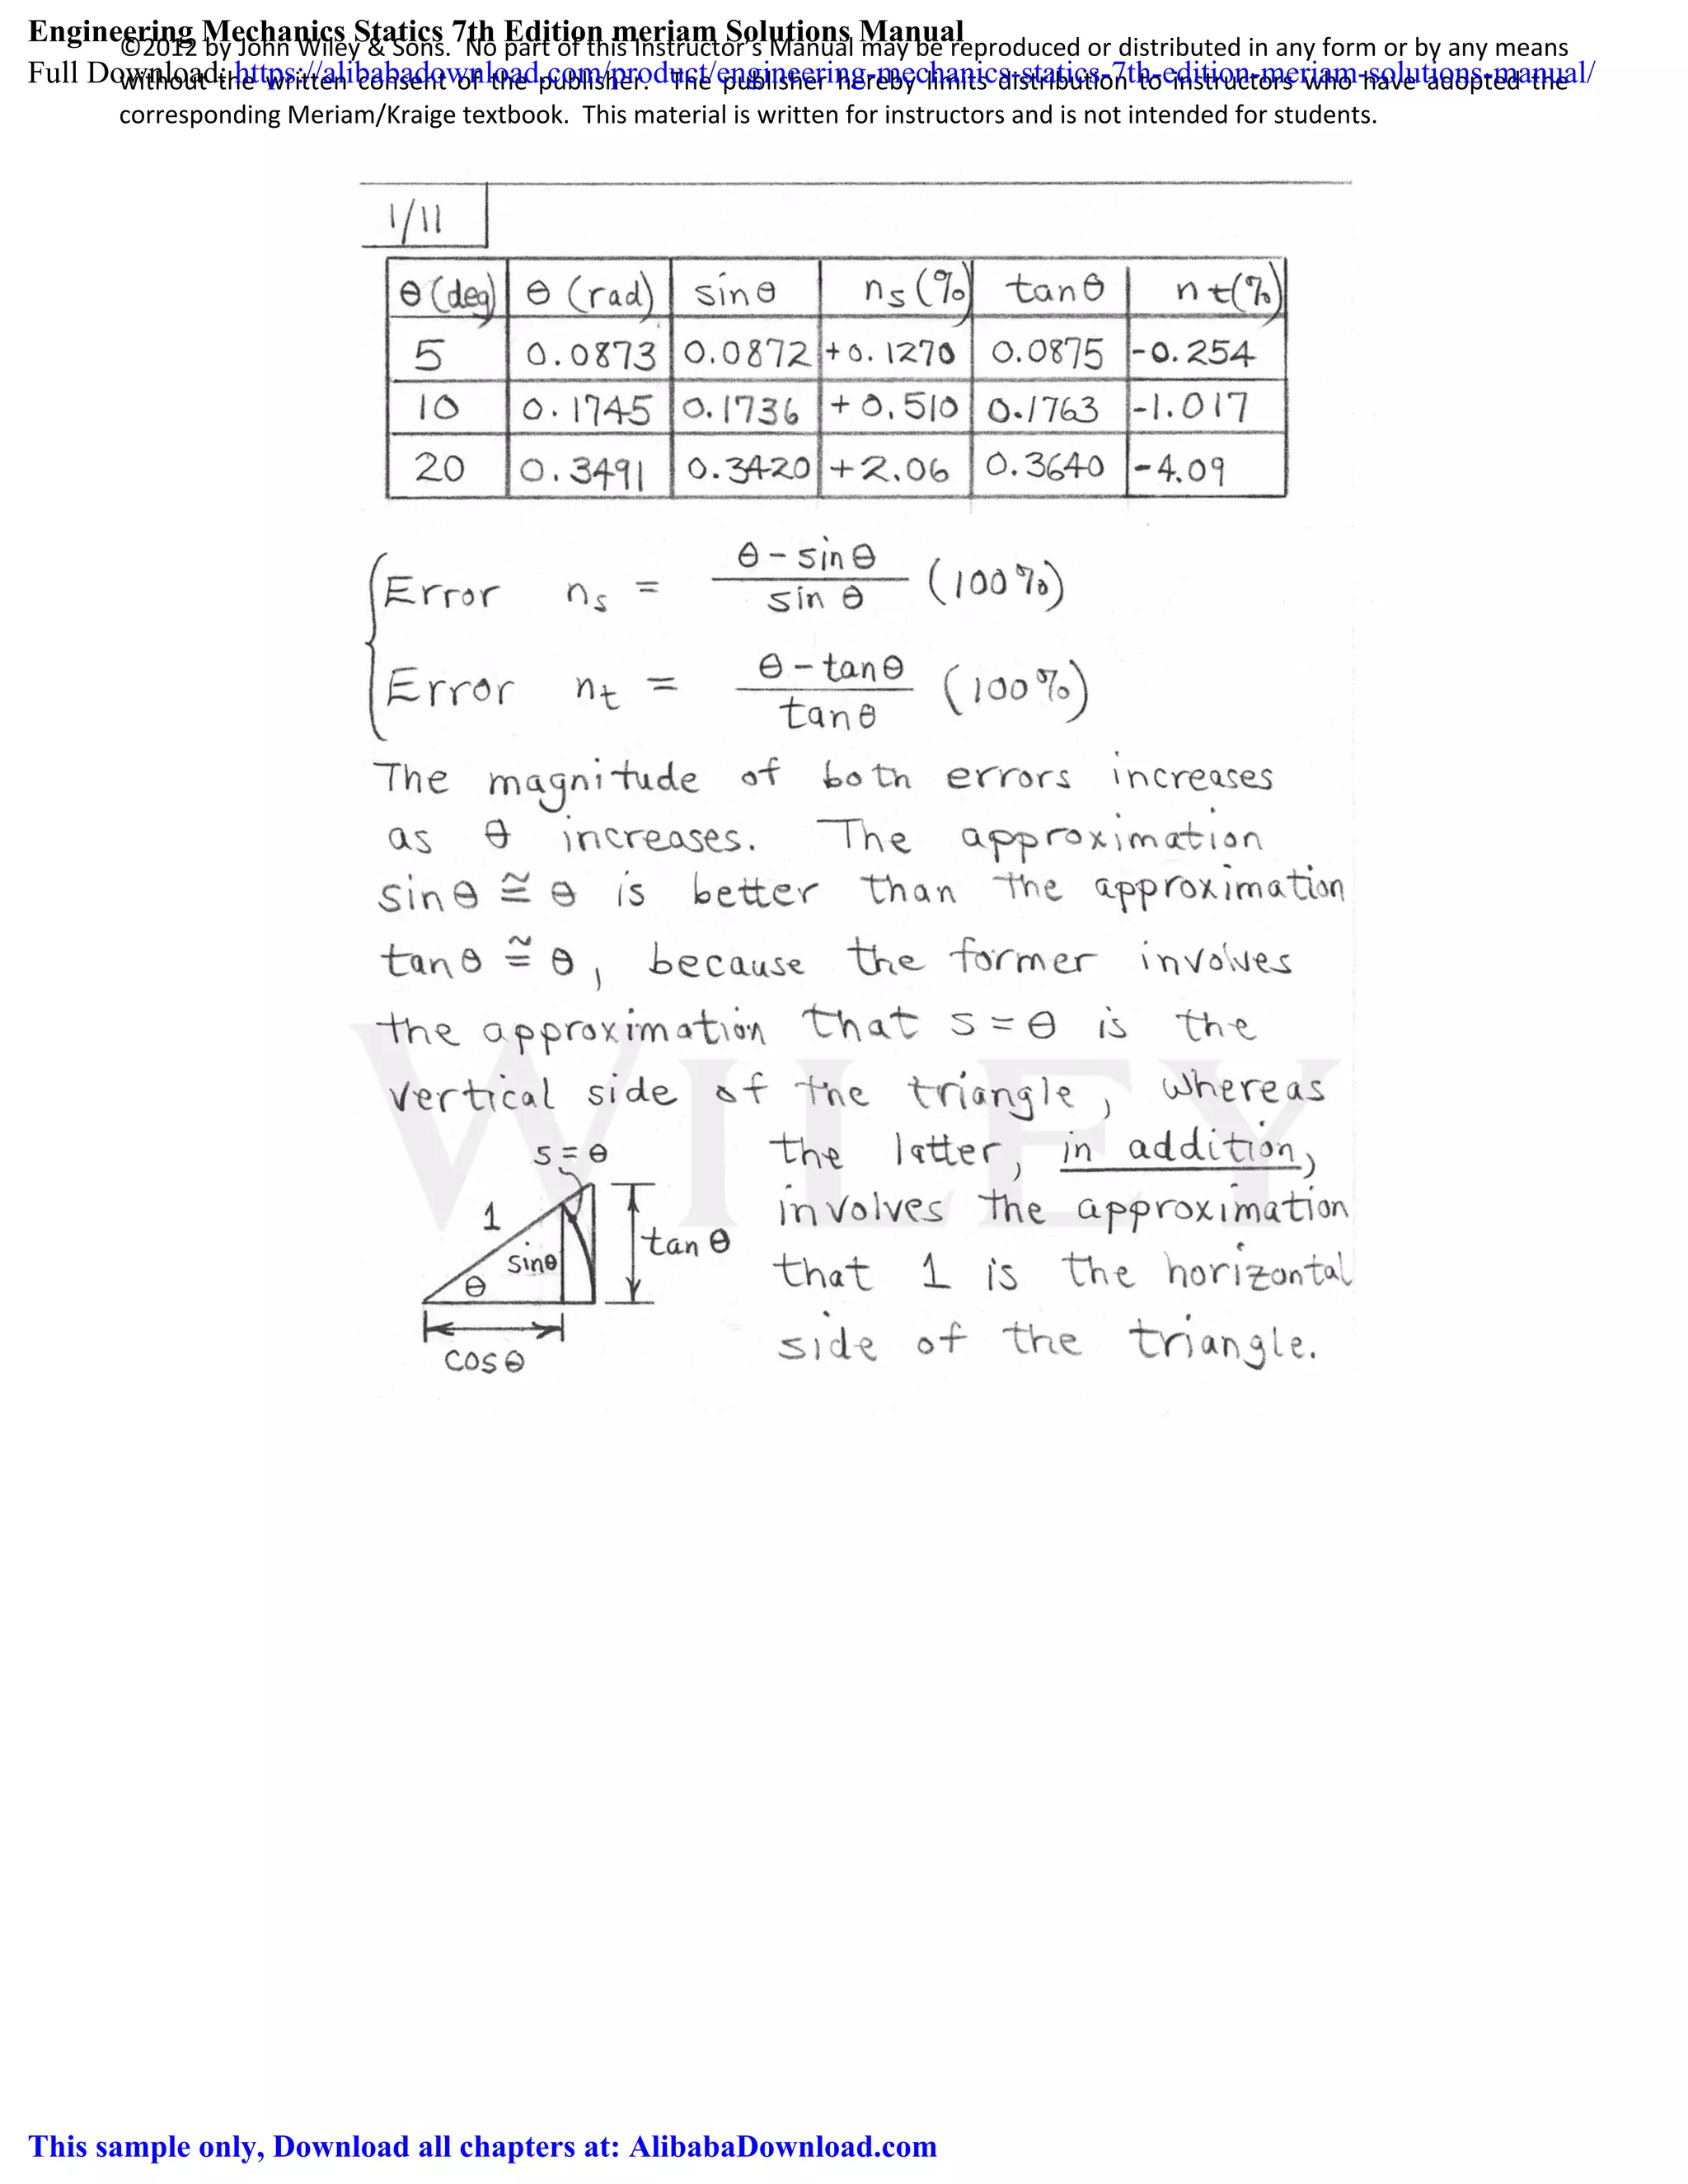 Engineering Mechanics Statics 7th Edition meriam Solutions Manual
©2012 by John Wiley & Sons. No part of this Instructor's Manual may be reproduced or distributed in any form or by any means
Full Download: https://alibabadownload.com/product/engineering-mechanics-statics-7th-edition-meriam-solutions-manual/
without the written consent of the publisher. The publisher hereby limits distribution to instructors who have adopted the
corresponding Meriam/Kraige textbook. This material is written for instructors and is not intended for students.
1/11
θ (deg) θ (rad) sin θ ns (%) tan θ nt (%)
5 0.0873 0.0872 +0.1270 0.0875 -0.254
10 0.1745 0.1736 +0.510 0.1763 -1.017
20 0.3491 0.3420 +2.06 0.3640 -4.09
Error ns = θ - sin θ / sin θ (100%)
Error nt = θ - tan θ / tan θ (100%)
The magnitude of both errors increases
as θ increases. The approximation
sin θ ≅ θ is better than the approximation
tan θ ≅ θ, because the former involves
the approximation that s = θ is the
vertical side of the triangle, whereas
the latter, in addition,
involves the approximation
that 1 is the horizontal
side of the triangle.
s = θ
1
tan θ
sin θ
θ
cos θ
WILEY
This sample only, Download all chapters at: AlibabaDownload.com